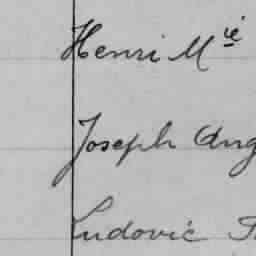 Henri Mié
Joseph Aug
Ludovic